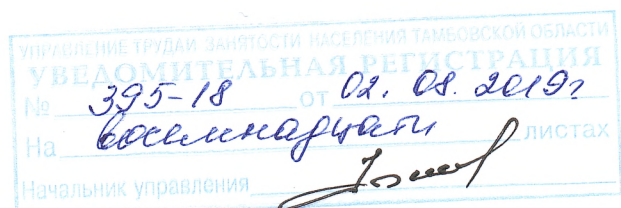 УПРАВЛЕНИЕ ТРУДА И ЗАНЯТОСТИ НАСЕЛЕНИЯ ТАМБОВСКОЙ ОБЛАСТИ
УВЕДОМИТЕЛЬНАЯ РЕГИСТРАЦИЯ
№ 395-18 от 02. 08. 2019г
На восемнадцати листах
Начальник управления